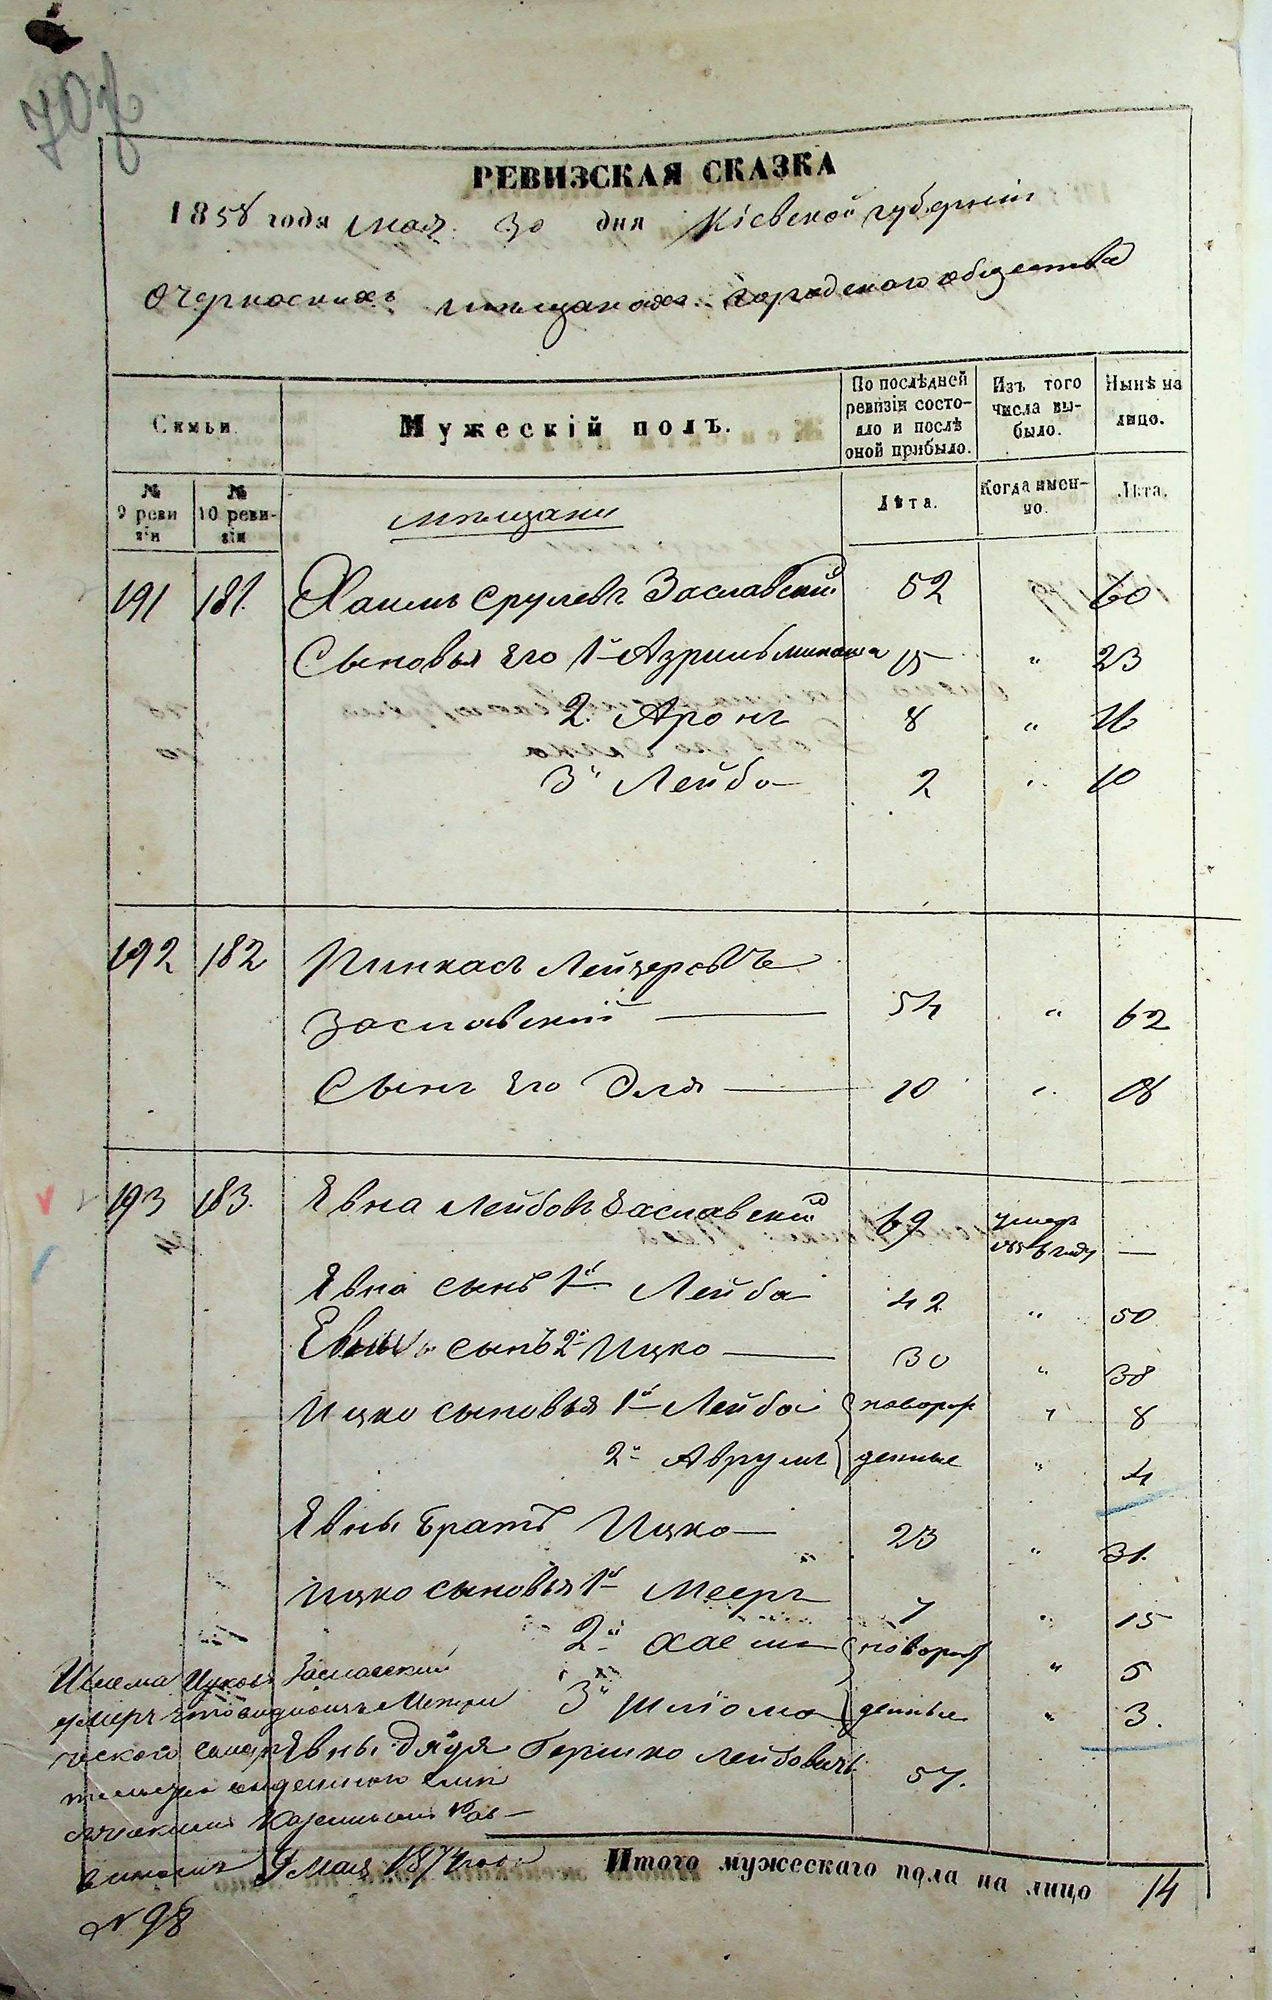 РЕВИЗСКАЯ СКАЗКА
1858 года мая 30 дня Кіевской губерніи
О Черкаскихъ мѣщанахъ городскаго общества
Семьи.
Мужескій полъ.
По послѣдней ревизіи состояло и послѣ оной прибыло.
Изъ того числа выбыло.
Нынѣ на лицо.
№ 9 ревизіи
№ 10 ревизіи
Лѣта.
Когда именно.
Лѣта.
мѣщане
191 181. Хаимъ Срулевъ Заславскій 52 60
Сыновья Его 1й Азриль Минаша 15 " 23
2. Аронъ 8 " 16
3й Лейба 2 " 10
192 182 Пинхасъ Лейзеровъ
Заславскій 54 " 62
Сынъ Его Эля 10 " 18
193 183. Явна Лейбовъ Заславскій 69 умеръ
въ году —
Явна сынъ 1й Лейба 42 " 50
сынъ 2й Ицко 30 " 38
Ицко сыновья 1й Лейба новорож " 8
2й Аврумъ денные " 4
Явны братъ Ицко 23 " 31.
Ицко сыновья 1й Мееръ 7 " 15
2й Хаемъ новорож " 5
3й Шліома денные " 3.
Явны Дядя Гершко Лейбовичъ 57.
Заславскій
умеръ
9 Мая 1874 года
№ 98
Итого мужескаго пола на лицо 14